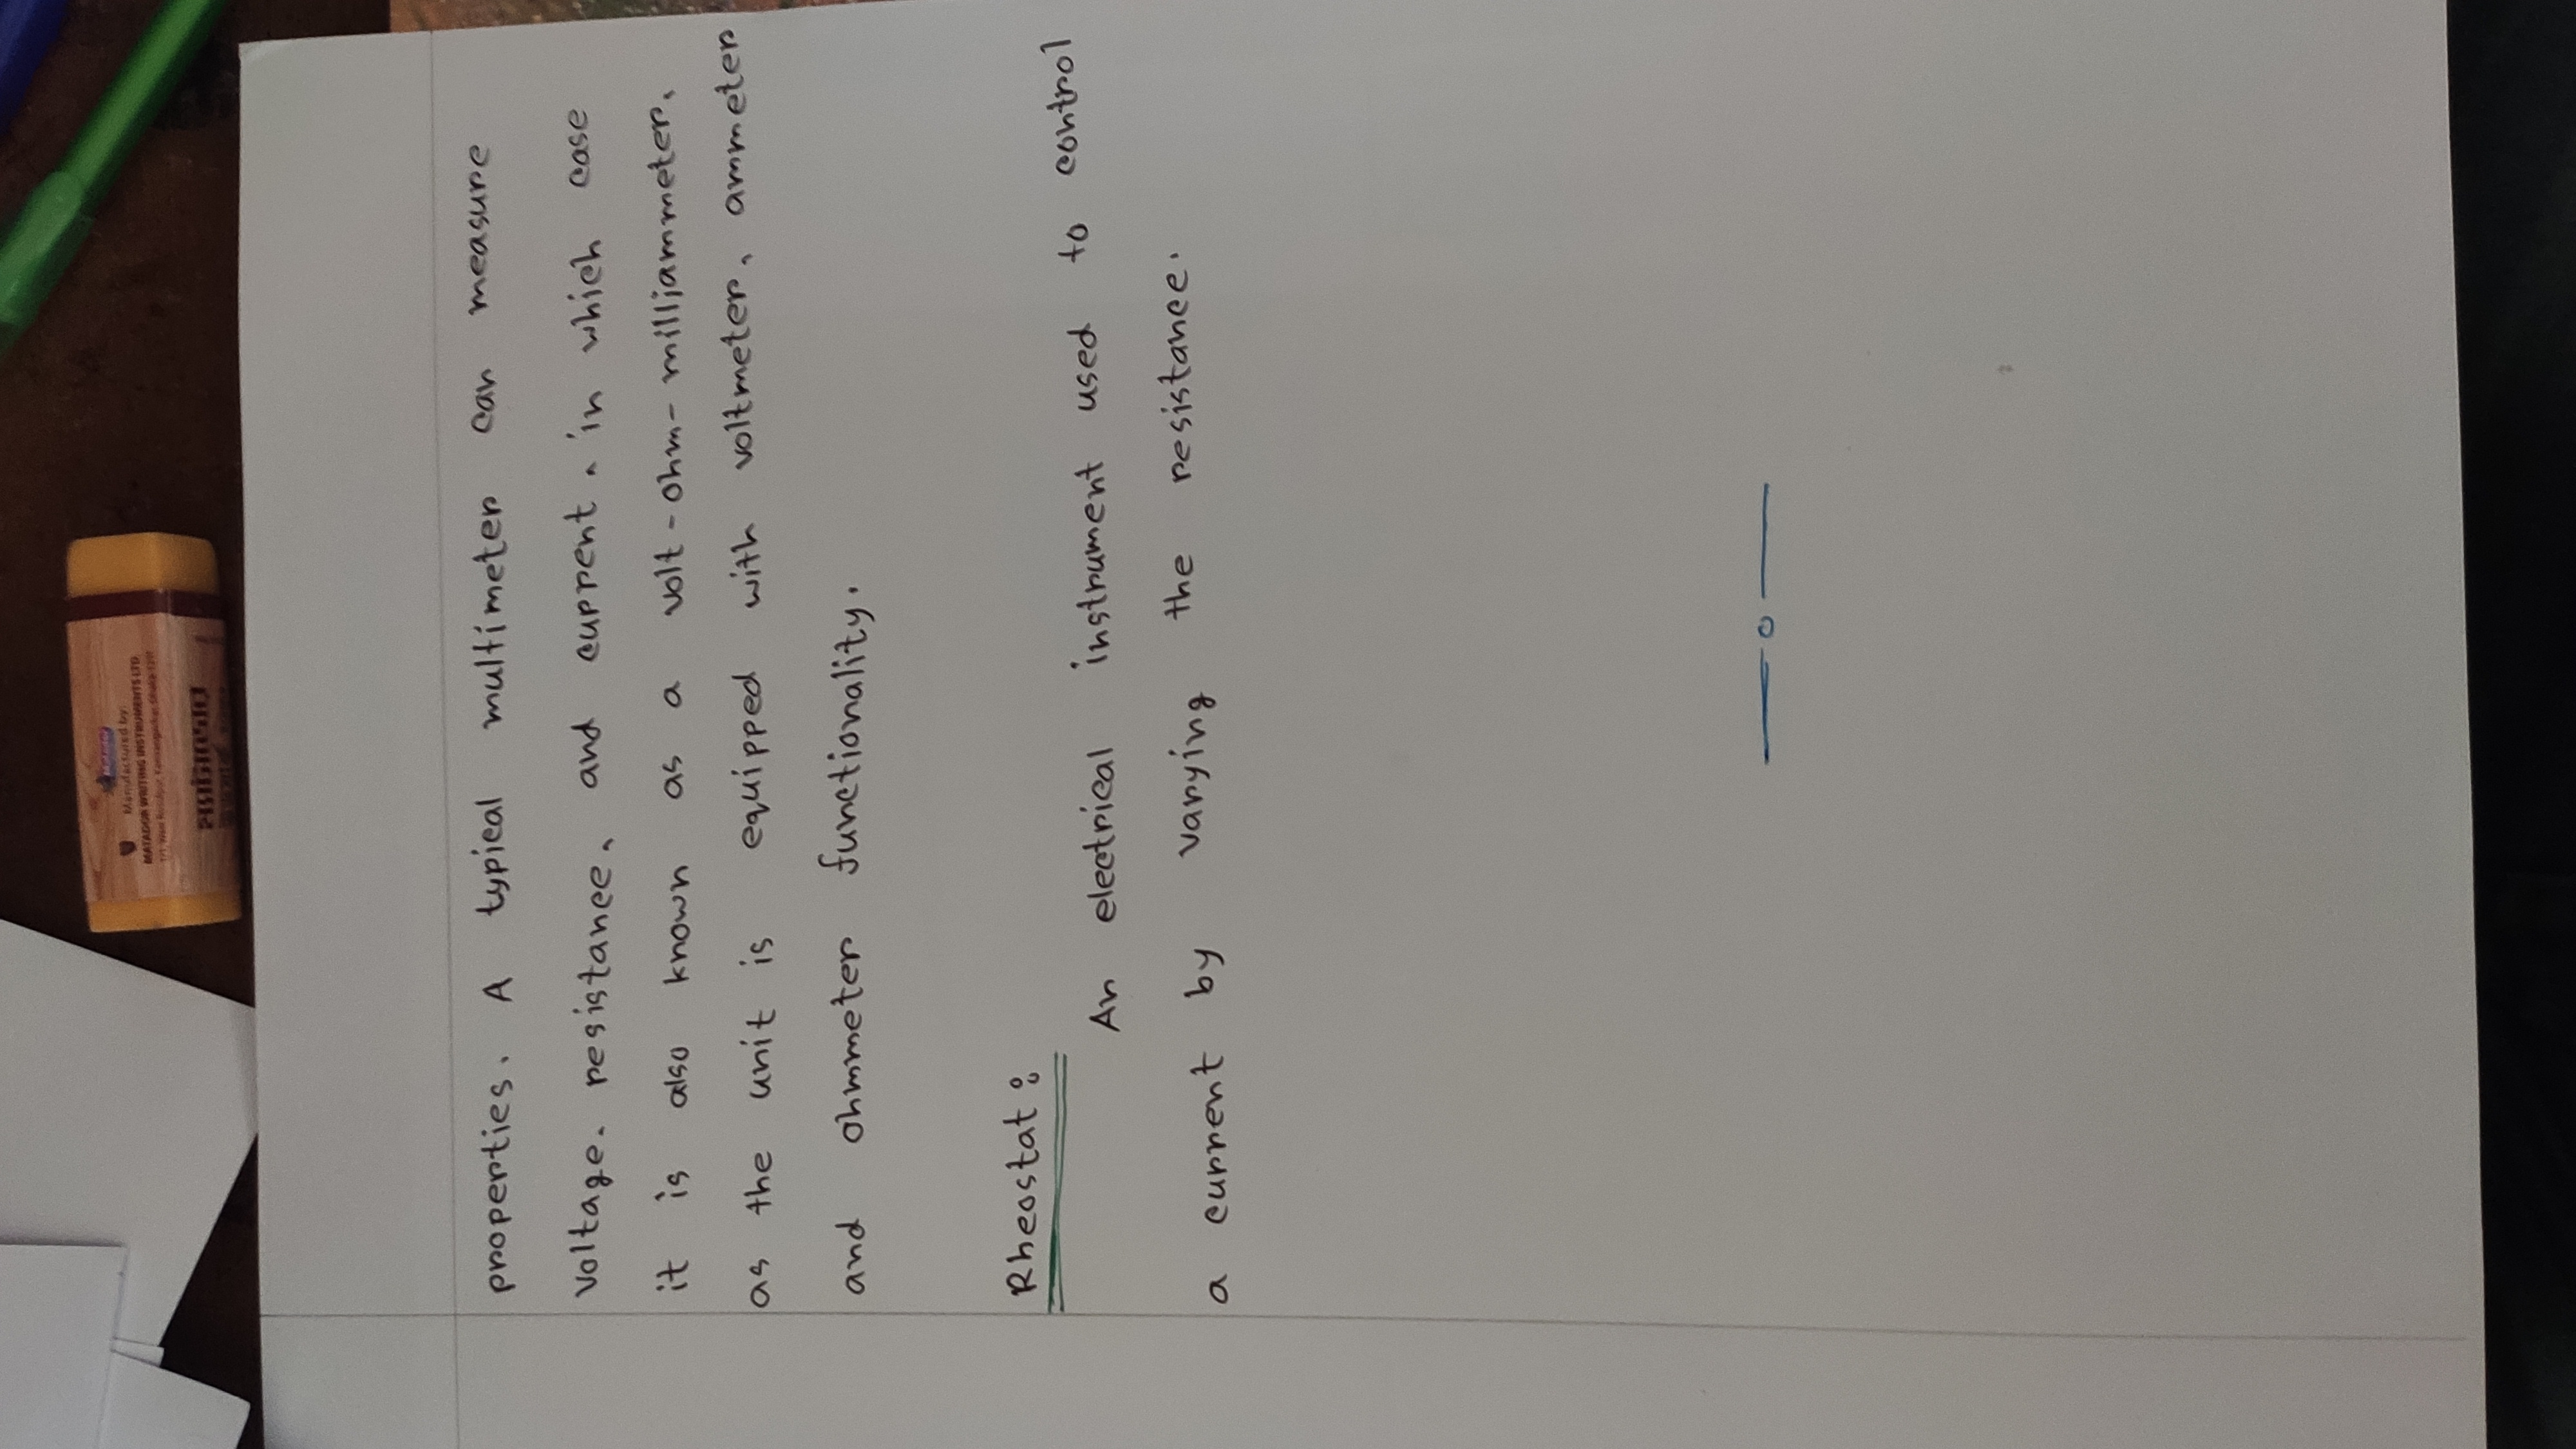 Matador
Manufactured by:
MATADOR WRITING INSTRUMENTS LTD.
properties. A typical multimeter can measure
voltage. resistance, and current, in which case
it is also known as a volt-ohm-milliammeter,
as the unit is equipped with voltmeter, ammeter
and ohmmeter functionality.
Rheostat:
An electrical instrument used to control
a current by varying the resistance.